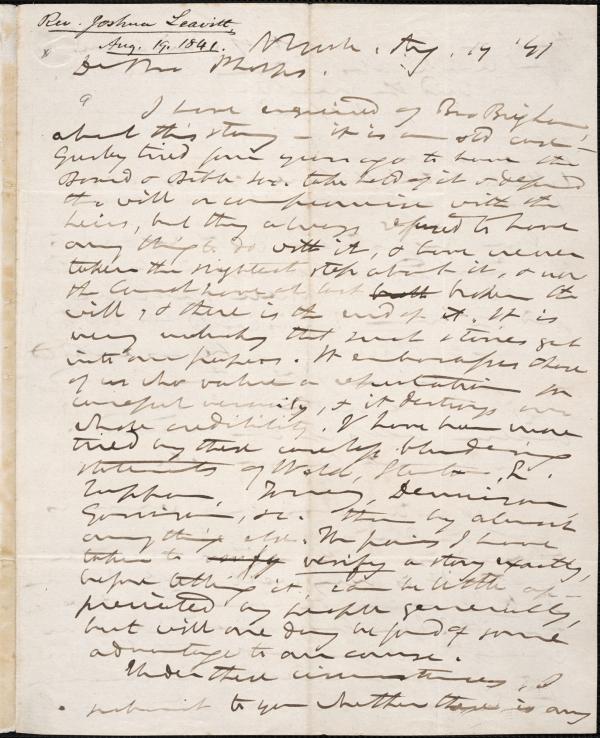 Rev. Joshua Leavitt,
Aug. 19. 1841.
N York. Aug. 19 '41
Dear Bro Phelps.
I have enquired of Bro Brigham,
about this story - it is an old case -
tried four years ago to have the
Board & Bible Soc. take hold of it & defend
the will or compromise with the
heirs, but they always refused to have
any thing to do with it, & have never
taken the slightest step about it, & now
the have at last broken the
will, & there is the end of it. It is
very unlucky that such stories get
into our papers. It embarrasses those
of us who value a reputation for
careful veracity, & it destroys our
whole credibility. I have been more
tried by these careless blundering
statements of Weld, Stanton, L.
Tappan, Torrey, Dennison,
Garrison, &c. than by almost
anything else. The pains I have
taken to verify a story exactly,
before telling it, can be little ap-
preciated by people generally,
but will one day be found of some
advantage to our cause.
Under these circumstances, I
submit to you whether there is any